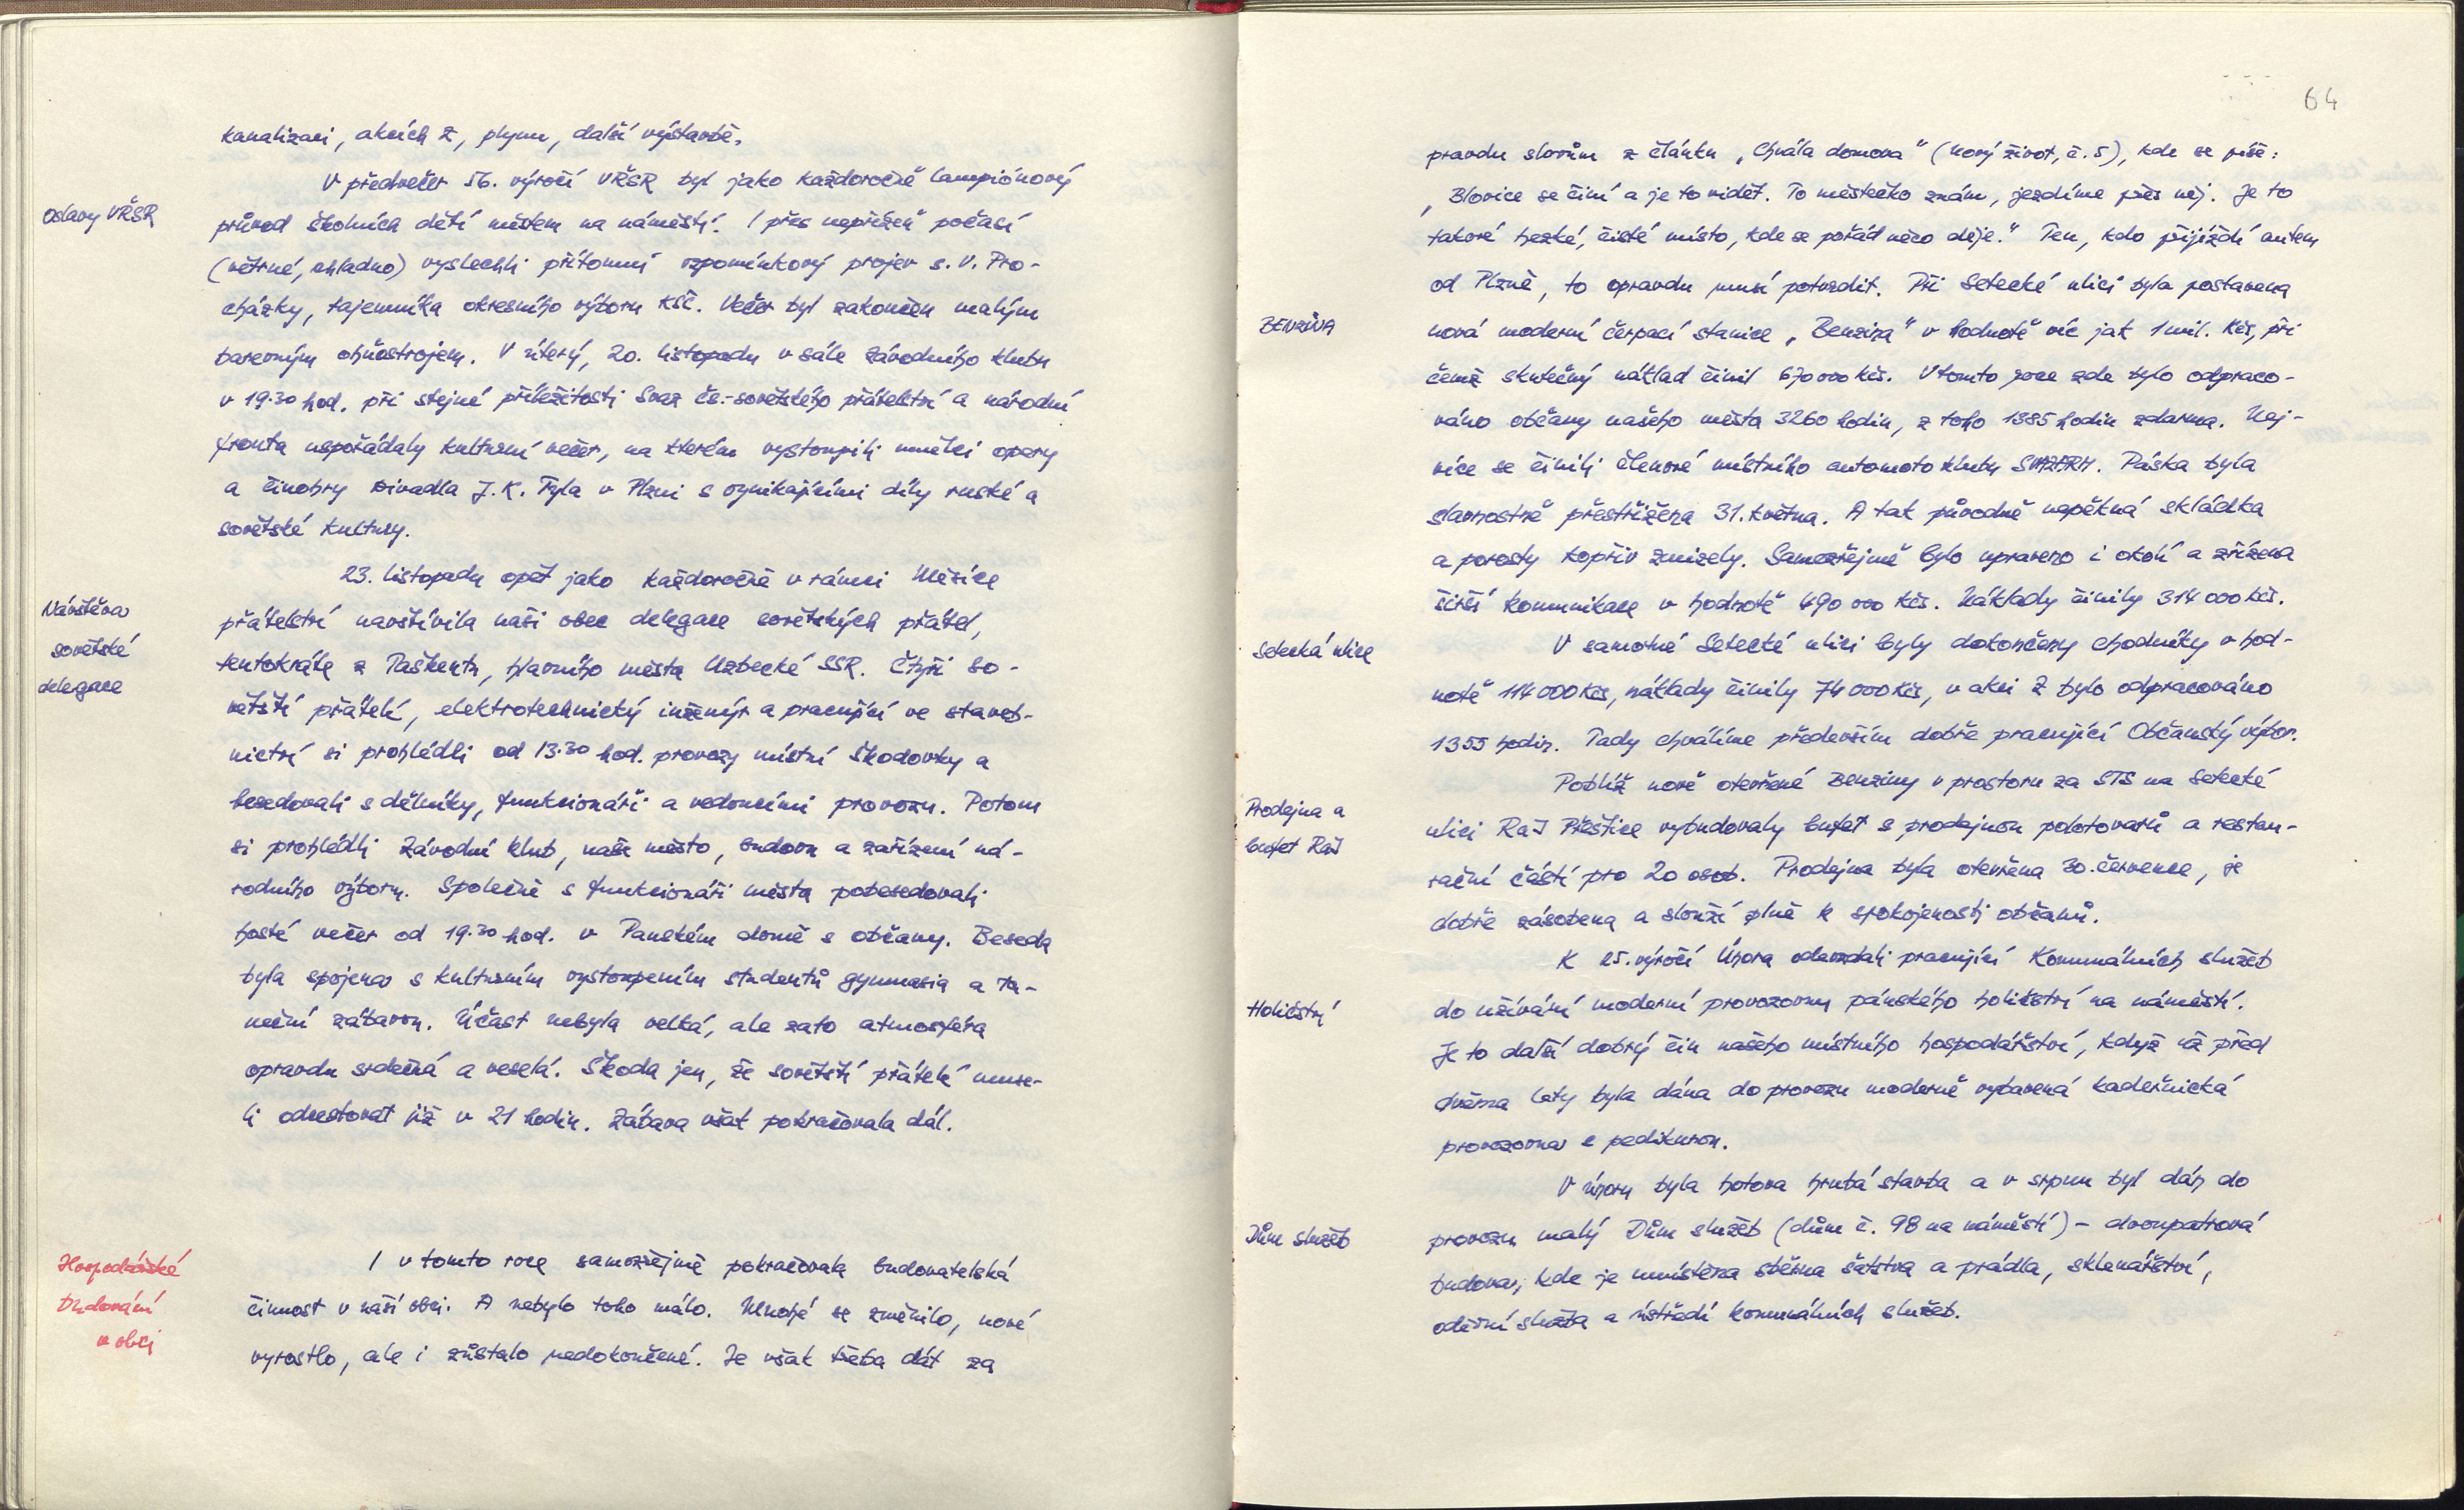 kanalizaci, akcích Z, plynu, další výstavbě.
Oslavy VŘSR
V předvečer 56. výročí VŘSR byl jako každoročně lampiónový
průvod školních dětí městem na náměstí. I přes nepřízeň počasí
(větrné, chladno) vyslechli přítomní vzpomínkový projev s. V. Pro-
cházky, tajemníka okresního výboru KSČ. Večer byl zakončen malým
barevným ohňostrojem. V úterý, 20. listopadu v sále Závodního klubu
v 19.30 hod. při stejné příležitosti Svaz čs.-sovětského přátelství a národní
fronta uspořádaly kulturní večer, na kterém vystoupili umělci opery
a činohry Divadla J. K. Tyla v Plzni s vynikajícími díly ruské a
sovětské kultury.
Návštěva
sovětské
delegace
23. listopadu opět jako každoročně v rámci Měsíce
přátelství navštívila naši obec delegace sovětských přátel,
tentokráte z Taškentu, hlavního města Uzbecké SSR. Čtyři so-
větští přátelé, elektrotechnický inženýr a pracující ve staveb-
nictví si prohlédli od 13.30 hod. provozy místní Škodovky a
besedovali s dělníky, funkcionáři a vedoucími provozu. Potom
si prohlédli Závodní klub, naše město, budovu a zařízení ná-
rodního výboru. Společně s funkcionáři města pobesedovali
hosté večer od 19.30 hod. v Panském domě s občany. Beseda
byla spojena s kulturním vystoupením studentů gymnasia a ta-
neční zábavou. Účast nebyla velká, ale zato atmosféra
opravdu srdečná a veselá. Škoda jen, že sovětští přátelé muse-
li odcestovat již v 21 hodin. Zábava však pokračovala dál.
Hospodářské
budování
v obci
I v tomto roce samozřejmě pokračovala budovatelská
činnost v naší obci. A nebylo toho málo. Mnohé se změnilo, nové
vyrostlo, ale i zůstalo nedokončené. Je však třeba dát za
64
pravdu slovům z článku „Chvála domova" (Nový život, č. 5), kde se píše:
„Blovice se činí a je to vidět. To městečko znám, jezdíme přes něj. Je to
takové hezké, čisté místo, kde se pořád něco děje." Ten, kdo přijíždí autem
od Plzně, to opravdu musí potvrdit. Při Setecké ulici byla postavena
BENZINA
nová moderní čerpací stanice „Benzina" v hodnotě víc jak 1 mil. Kčs, při
čemž skutečný náklad činil 670 000 Kčs. V tomto roce zde bylo odpraco-
váno občany našeho města 3260 hodin, z toho 1385 hodin zdarma. Nej-
více se činili členové místního automoto klubu SVAZARM. Páska byla
slavnostně přestřižena 31. května. A tak původně nepěkná skládka
a porosty kopřiv zmizely. Samozřejmě bylo upraveno i okolí a zřízena
širší komunikace v hodnotě 490 000 Kčs. Náklady činily 314 000 Kčs.
Setecká ulice
V samotné Setecké ulici byly dokončeny chodníky v hod-
notě 114 000 Kčs, náklady činily 74 000 Kčs, v akci Z bylo odpracováno
1355 hodin. Tady chválíme především dobře pracující Občanský výbor.
Prodejna a
bufet RaJ
Poblíž nově otevřené Benziny v prostoru za STS na Setecké
ulici RaJ Přeštice vybudovaly bufet s prodejnou polotovarů a restau-
rační částí pro 20 osob. Prodejna byla otevřena 30. července, je
dobře zásobena a slouží plně k spokojenosti občanů.
Holičství
K 25. výročí Února odevzdali pracující Komunálních služeb
do užívání moderní provozovnu pánského holičství na náměstí.
Je to další dobrý čin našeho místního hospodářství, když už před
dvěma lety byla dána do provozu moderně vybavená kadeřnická
provozovna s pedikurou.
Dům služeb
V únoru byla hotova hrubá stavba a v srpnu byl dán do
provozu malý Dům služeb (dům č. 98 na náměstí) - dvoupatrová
budova, kde je umístěna sběrna šatstva a prádla, sklenářství,
oděvní služba a ústředí komunálních služeb.